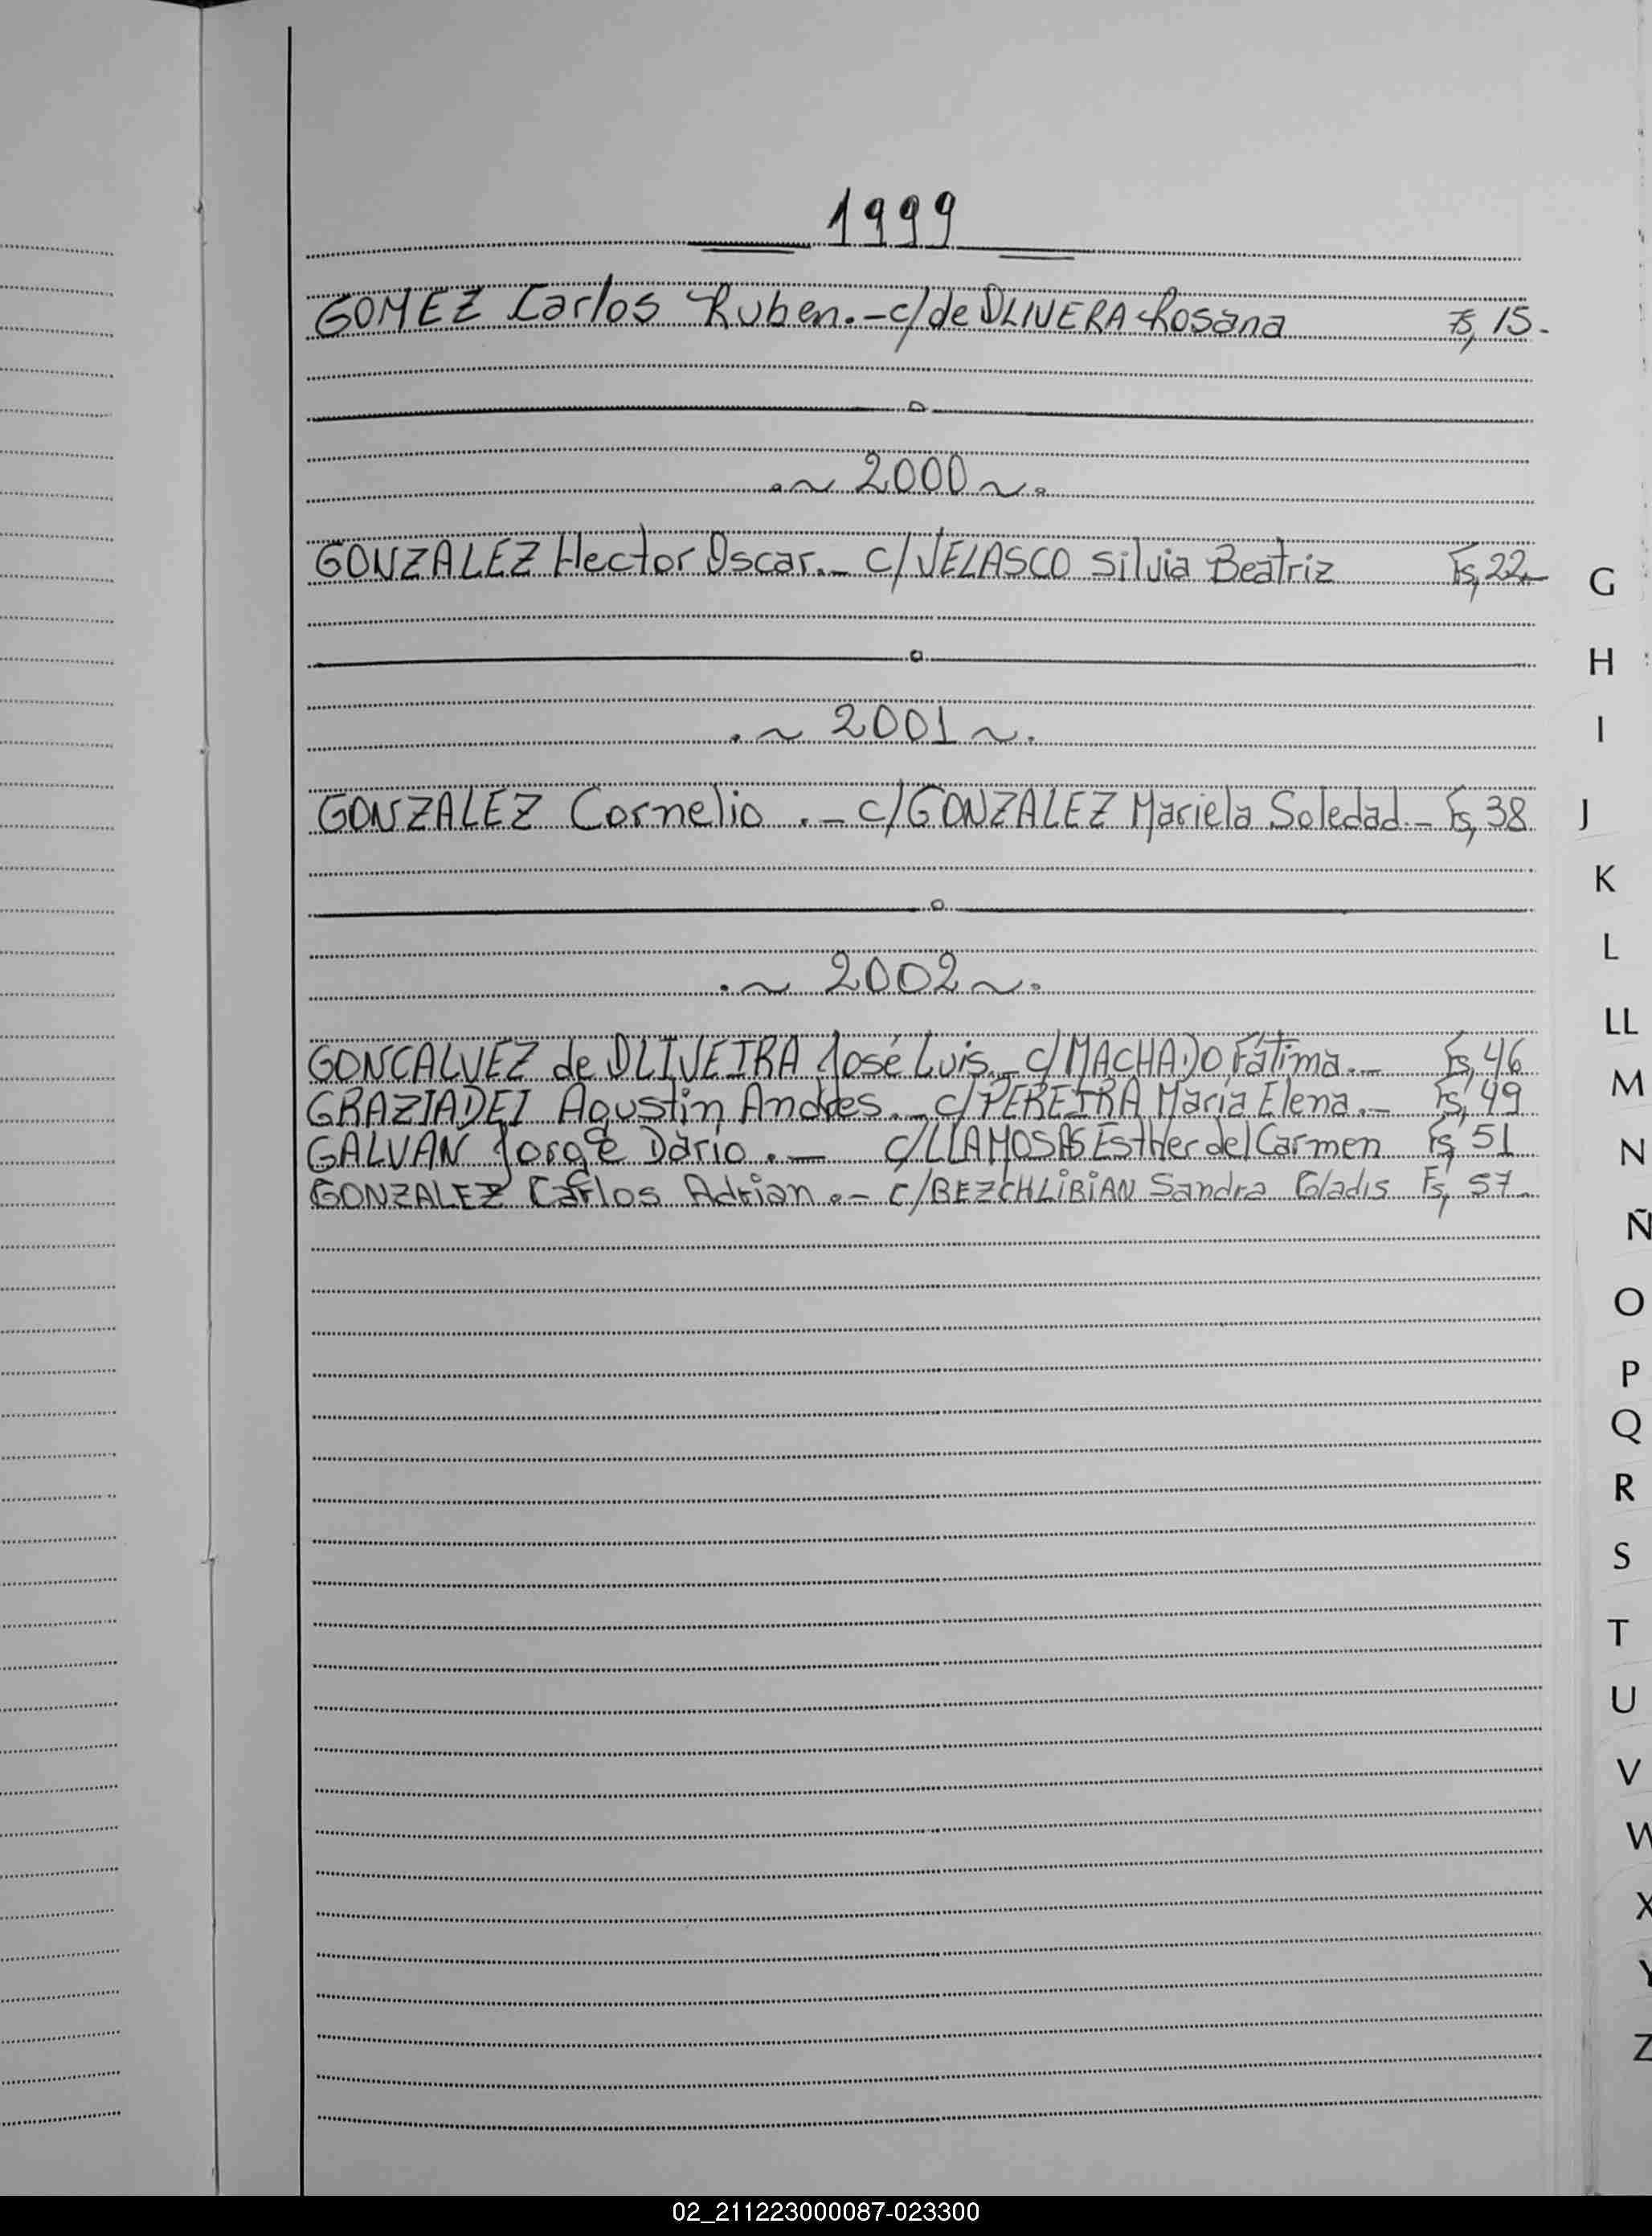 1999
GOMEZ Carlos Ruben.-c/de OLIVERA Rosana Fs, 15.-
.~ 2000 ~.
GONZALEZ Hector Oscar.- c/VELASCO Silvia Beatriz Fs, 22.-
.~ 2001 ~.
GONZALEZ Cornelio .- c/GONZALEZ Mariela Soledad.- Fs, 38
.~ 2002 ~.
GONCALVEZ de OLIVEIRA José Luis.- c/MACHADO Fátima.- Fs, 46
GRAZIADEI Agustin Andres.- c/PEREIRA María Elena.- Fs, 49
GALVAN Jorge Dario.- c/LLAMOSAS Esther del Carmen Fs, 51
GONZALEZ Carlos Adrian.- c/BEZCHLIBIAN Sandra Gladis Fs, 57.-
G
H
I
J
K
L
LL
M
N
Ñ
O
P
Q
R
S
T
U
V
W
X
Y
Z
02_211223000087-023300